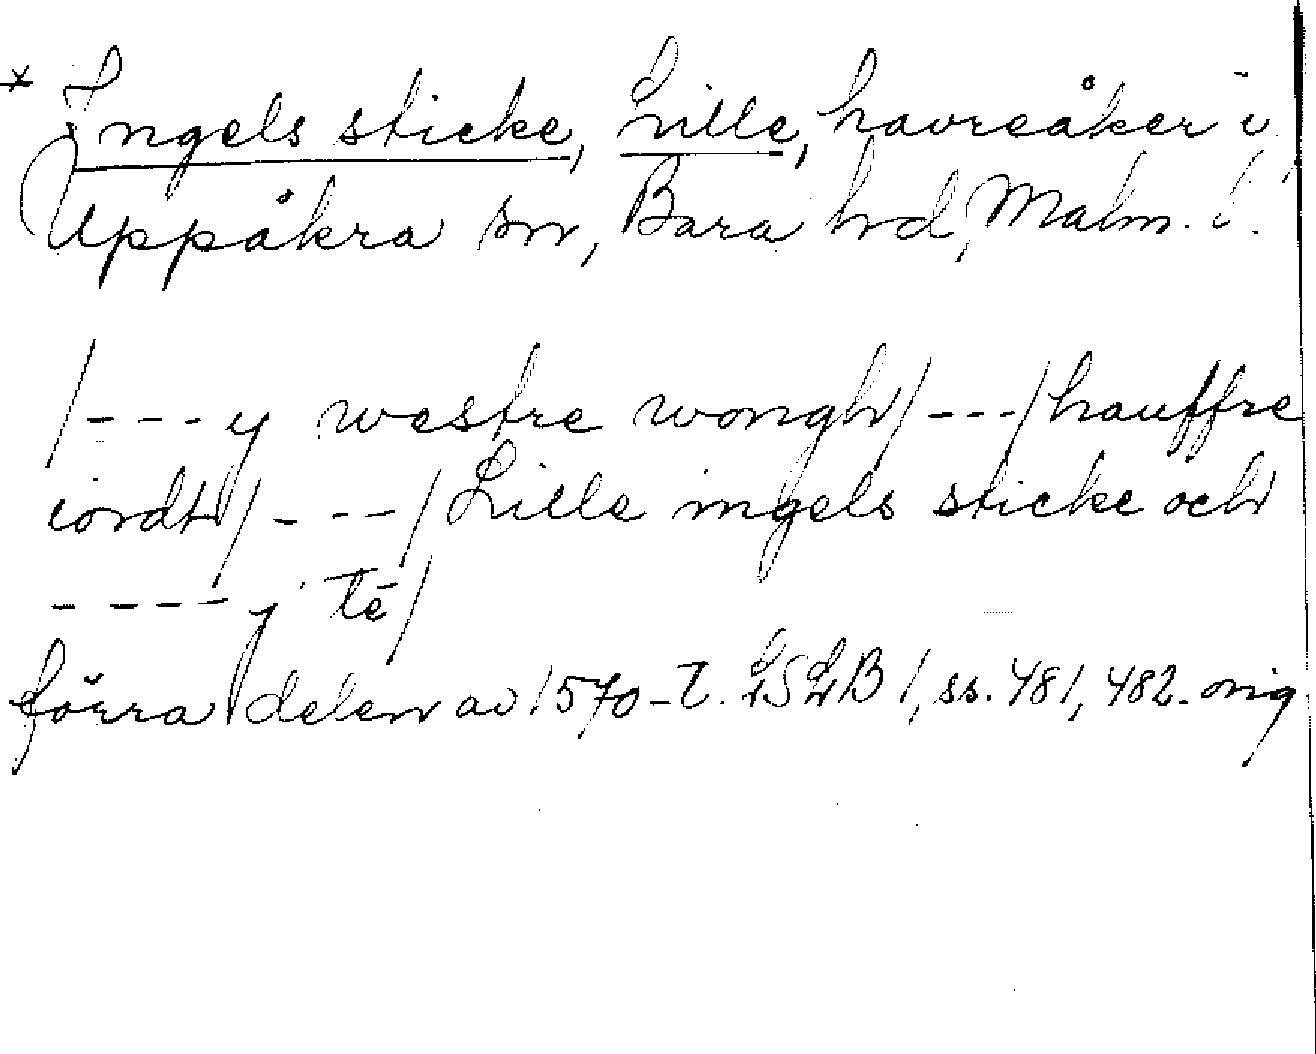 * Ingels sticke, Lille, havreåker i
Uppåkra sn, Bara hd, Malm. l.
/---y westre wongh/---/hauffre
iordt/---/Lille ingels sticke och
----j tē/
förra delen av 1570-t. LSLB 1, ss. 481, 482. orig.